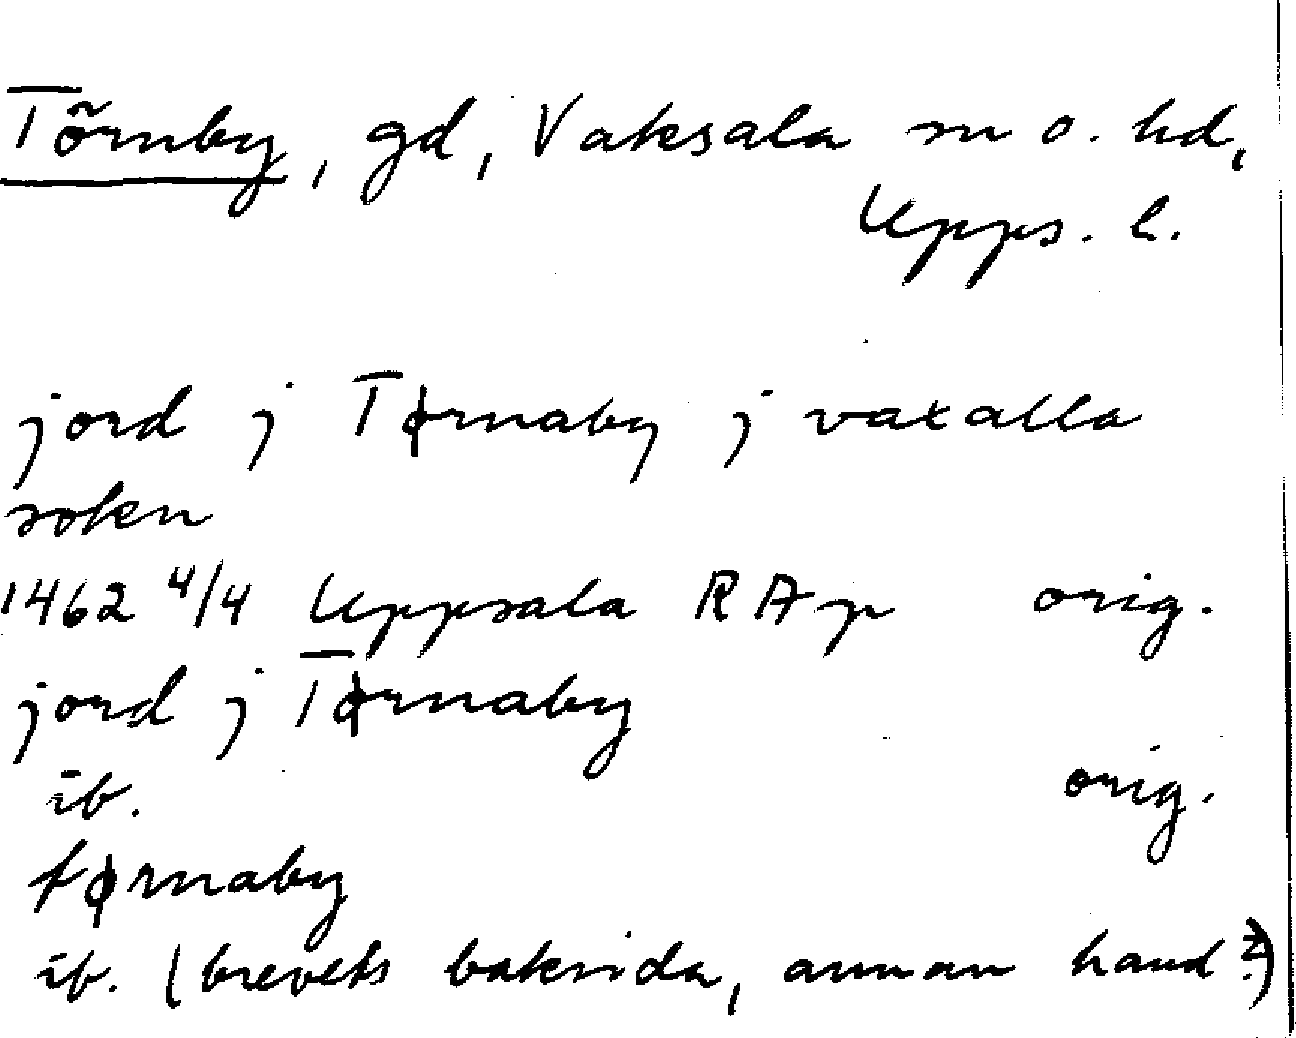 Törnby, gd, Vaksala sn o. hd,
Upps. l.
jord j Tørnaby j vaxalla
sokn
1462 4/4 Uppsala RAp orig.
jord j Tørnaby
ib. orig.
tørnaby
ib. (brevets baksida, annan hand?)